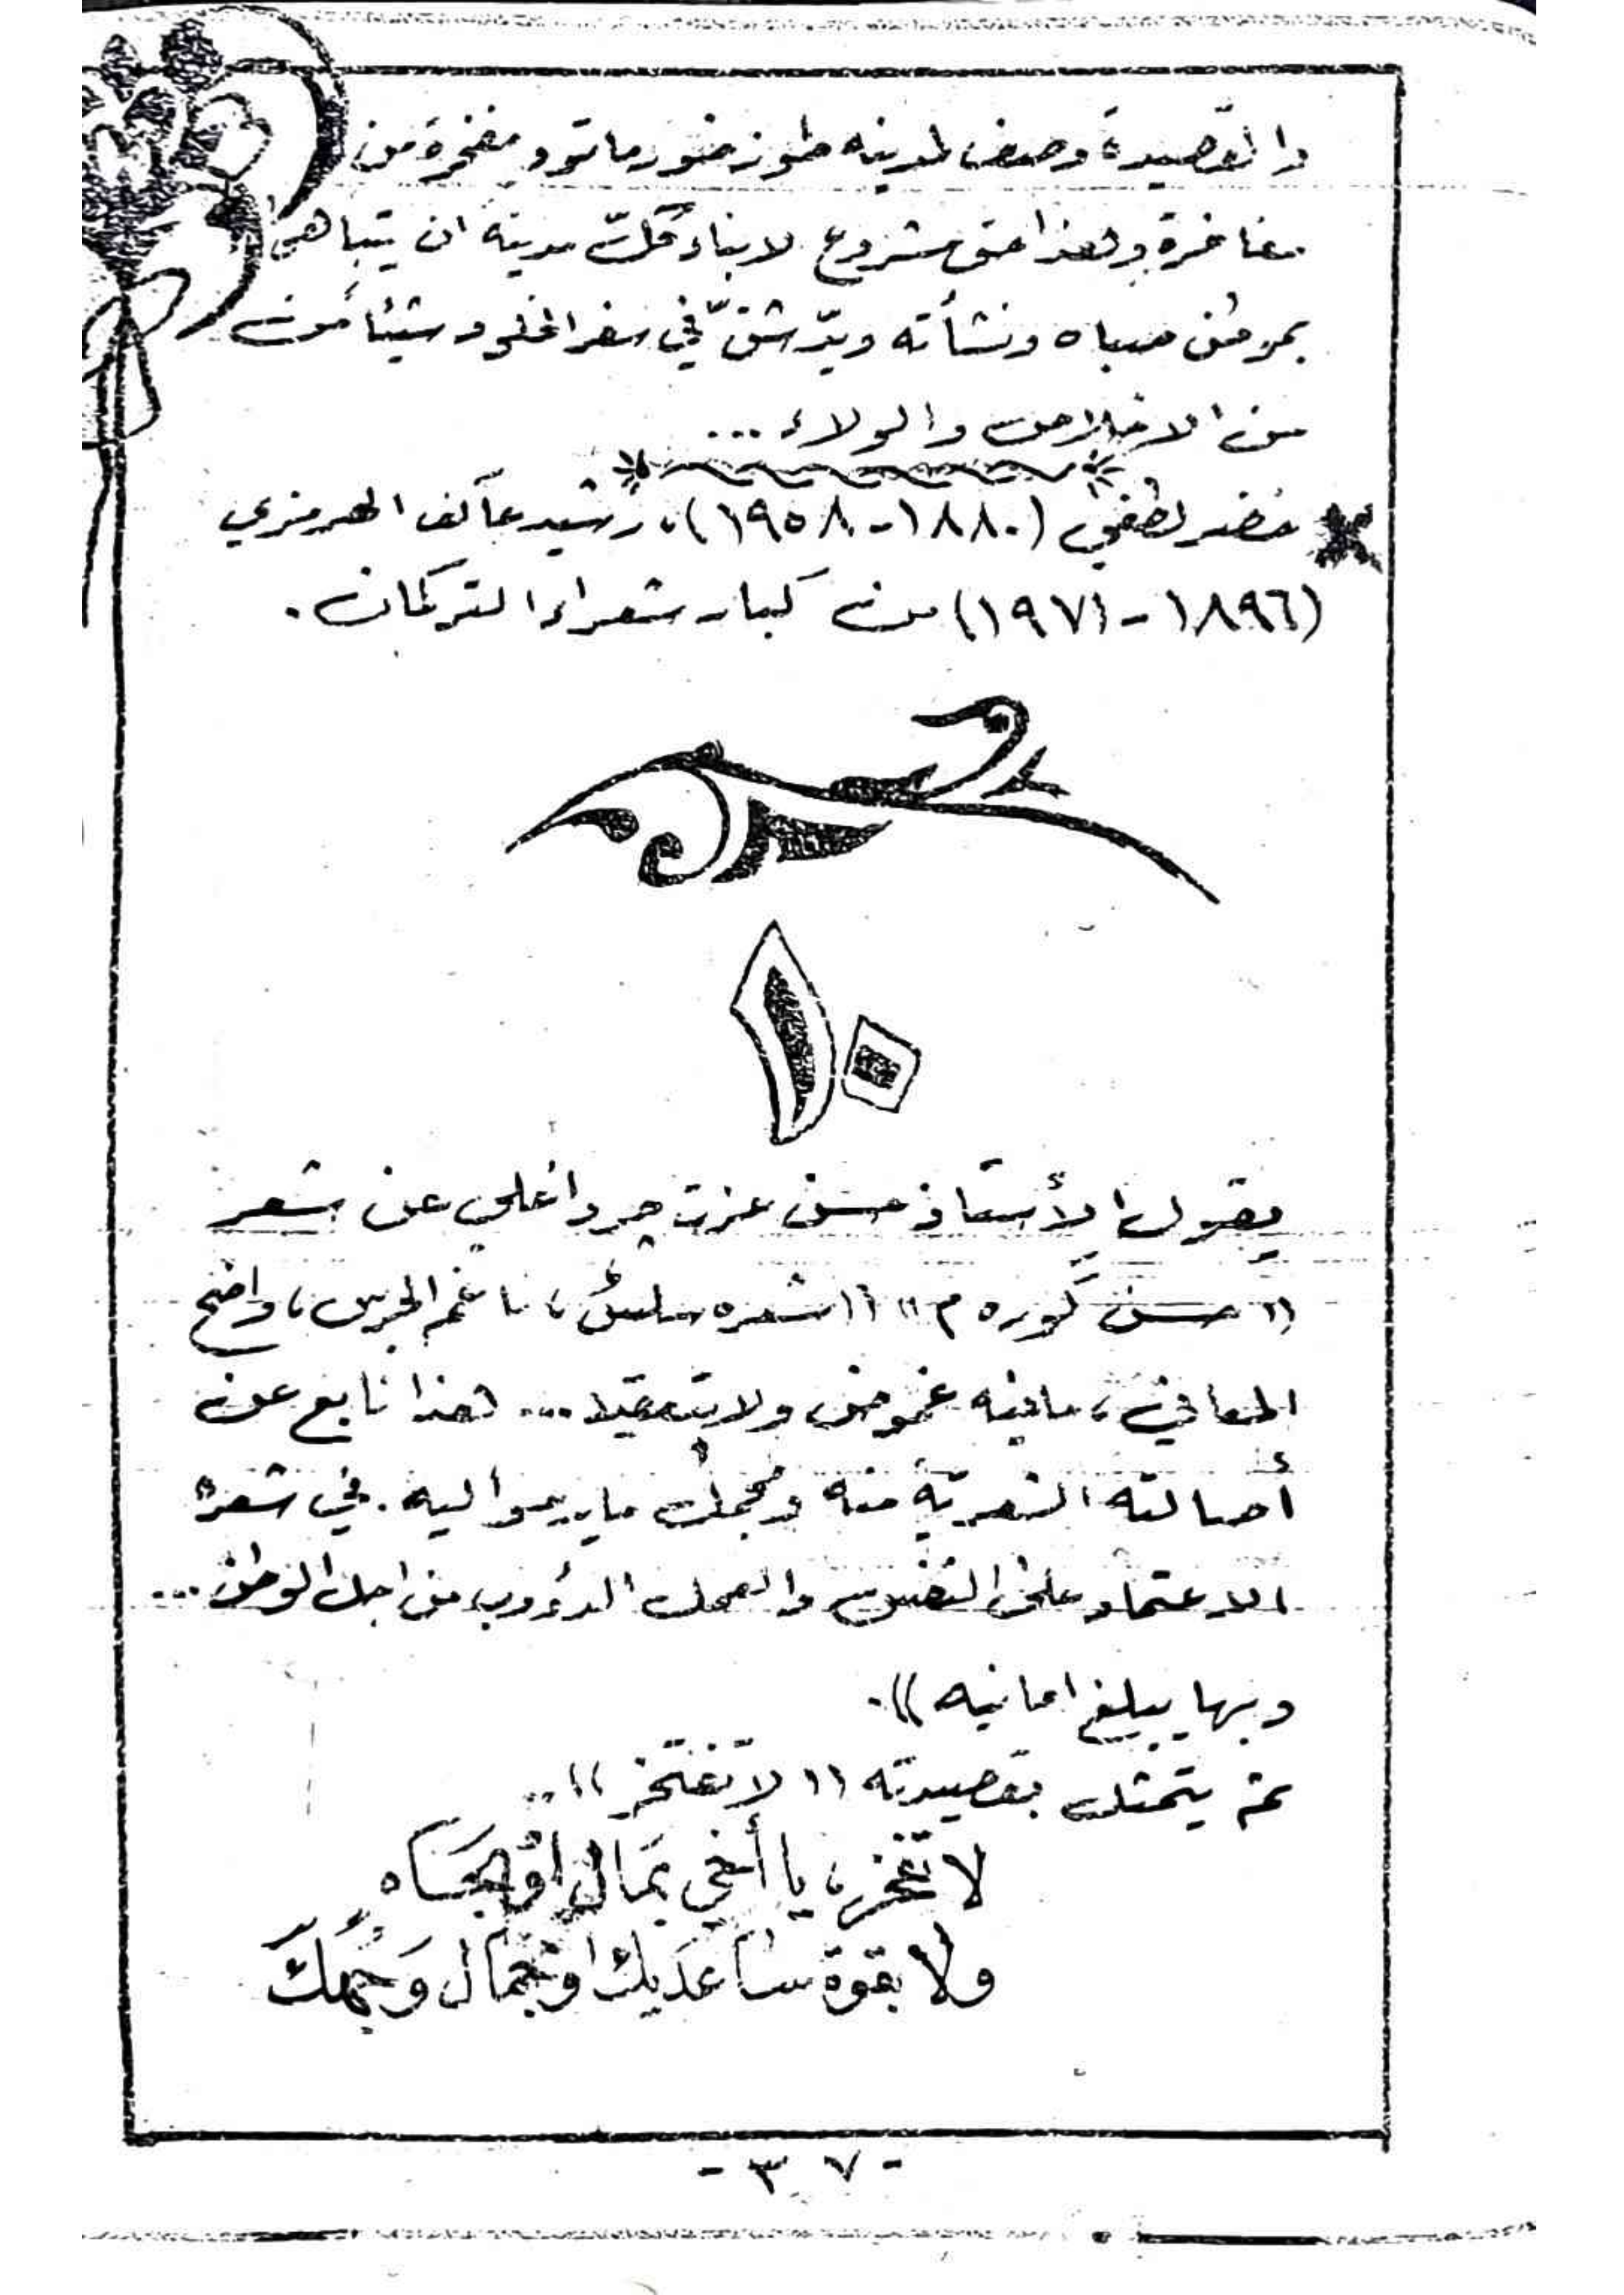 والقصيدة وصف لمدينة طوزخورماتو ومفخرة من
مفاخرة وهذا حق مشروع لابناء كلّ مدينة ان يتباهى
بموطن صباه ونشأته ويدّشنّ في سفر الخلود شيئاً من
من الاخلاص والولاء ...
خضر لطفي (١٨٨٠-١٩٥٨)، رشيد عاكف الهرمزي
(١٨٩٦-١٩٧١) من كبار شعراء التركمان.
١٠
يقول الأستاذ حسن عزت چرداغلي عن شعر
((حسن گوره م)) ((شعره سلسٌ، ناغم الجرس، واضح
المعاني، مافيه غموض ولا تعقيد... هذا نابع عن
أصالته الشعريّة منه ومُجمل مايدعو اليه. في شعره
الاعتماد على النفس والعمل الدؤوب من اجل الوطن...
وبها يبلغ امانيه)).
ثم يتمثل بقصيدته ((لا تفتخر))..
لا تفخر، يا أخي بمَال اوْ بجَاه
ولا بقوة سَاعدَيك اوْ بجمَال وَجْهكَ
- ٣٧ -